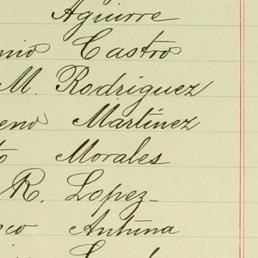 Aguirre
Castro
M. Rodriguez
Martinez
Morales
R. Lopez
Antuna